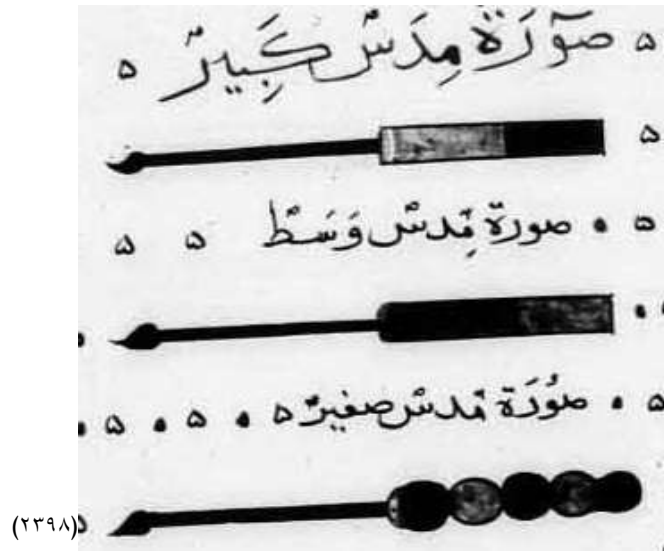 صورَة مِدَس كَبِير
صورة مِدس وَسَط
صُورَة مدس صغير
(٢٣٩٨)